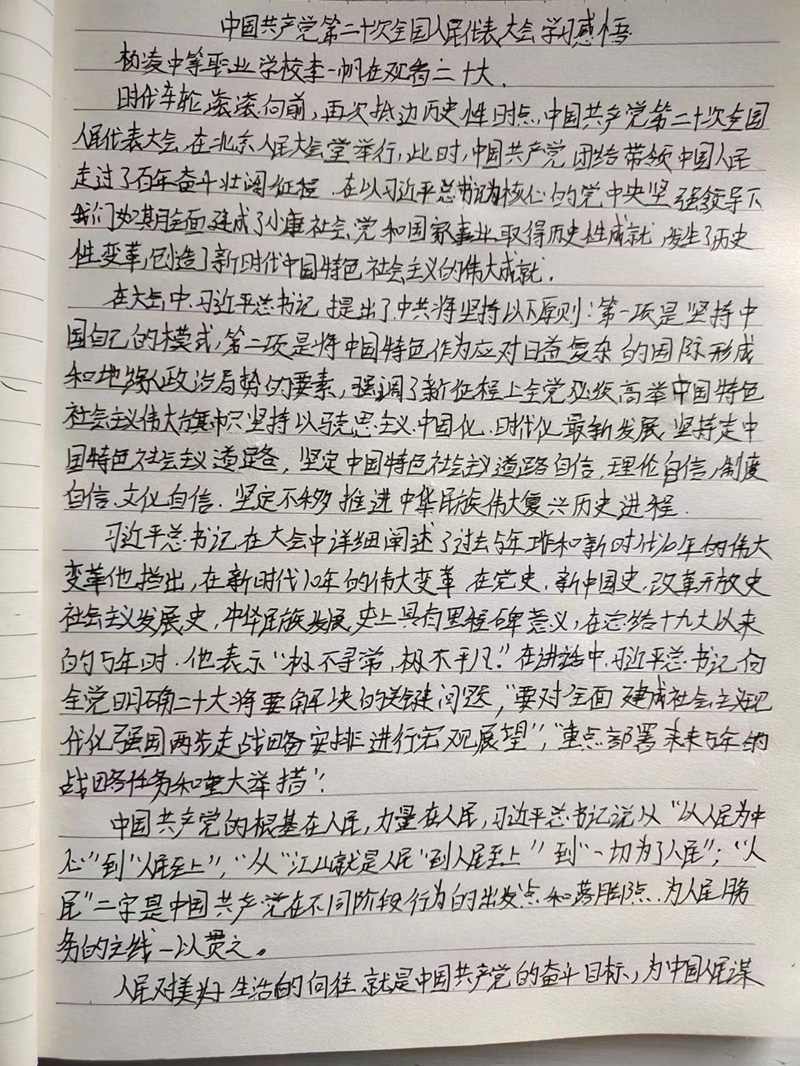 中国共产党第二十次全国人民代表大会学习感悟
杨凌中等职业学校李一帆在观看二十大.
时代车轮滚滚向前,再次抵边历史性时点,中国共产党第二十次全国
人民代表大会在北京人民大会堂举行,此时,中国共产党团结带领中国人民
走过了百年奋斗壮阔征程.在以习近平总书记为核心的党中央坚强领导下
我们如期全面建成了小康社会、党和国家事业取得历史性成就,发生了历史
性变革,创造了新时代中国特色社会主义的伟大成就.
在大会中,习近平总书记提出了中共将坚持以下原则:第一项是坚持中
国自己的模式,第二项是将中国特色作为应对日益复杂的国际形成
和地缘政治局势的要素,强调了新征程上全党必须高举中国特色
社会主义伟大旗帜坚持以马克思主义中国化.时代化最新发展,坚持走中
国特色社会主义道路,坚定中国特色社会主义道路自信,理伦自信,制度
自信、文化自信.坚定不移推进中华民族伟大复兴历史进程.
习近平总书记在大会中详细阐述了过去5年工作和新时代10年的伟大
变革他指出,在新时代10年的伟大变革,在党史,新中国史,改革开放史
社会主义发展史,中华民族发展史上具有里程碑意义,在总结十九大以来
的5年时.他表示“极不寻常,极不平凡.”在讲话中,习近平总书记向
全党明确二十大将要解决的关键问题,“要对全面建成社会主义现
代化强国两步走战略安排进行宏观展望”,“重点部署未来5年的
战略任务和重大举措”.
中国共产党的根基在人民,力量在人民,习近平总书记说从“以人民为中
心”到“人民至上”,“从“江山就是人民”到人民至上”到“一切为了人民”;“人
民”二字是中国共产党在不同阶段行为的出发点和落脚点.为人民服
务的主线一以贯之。
人民对美好生活的向往就是中国共产党的奋斗目标,为中国人民谋